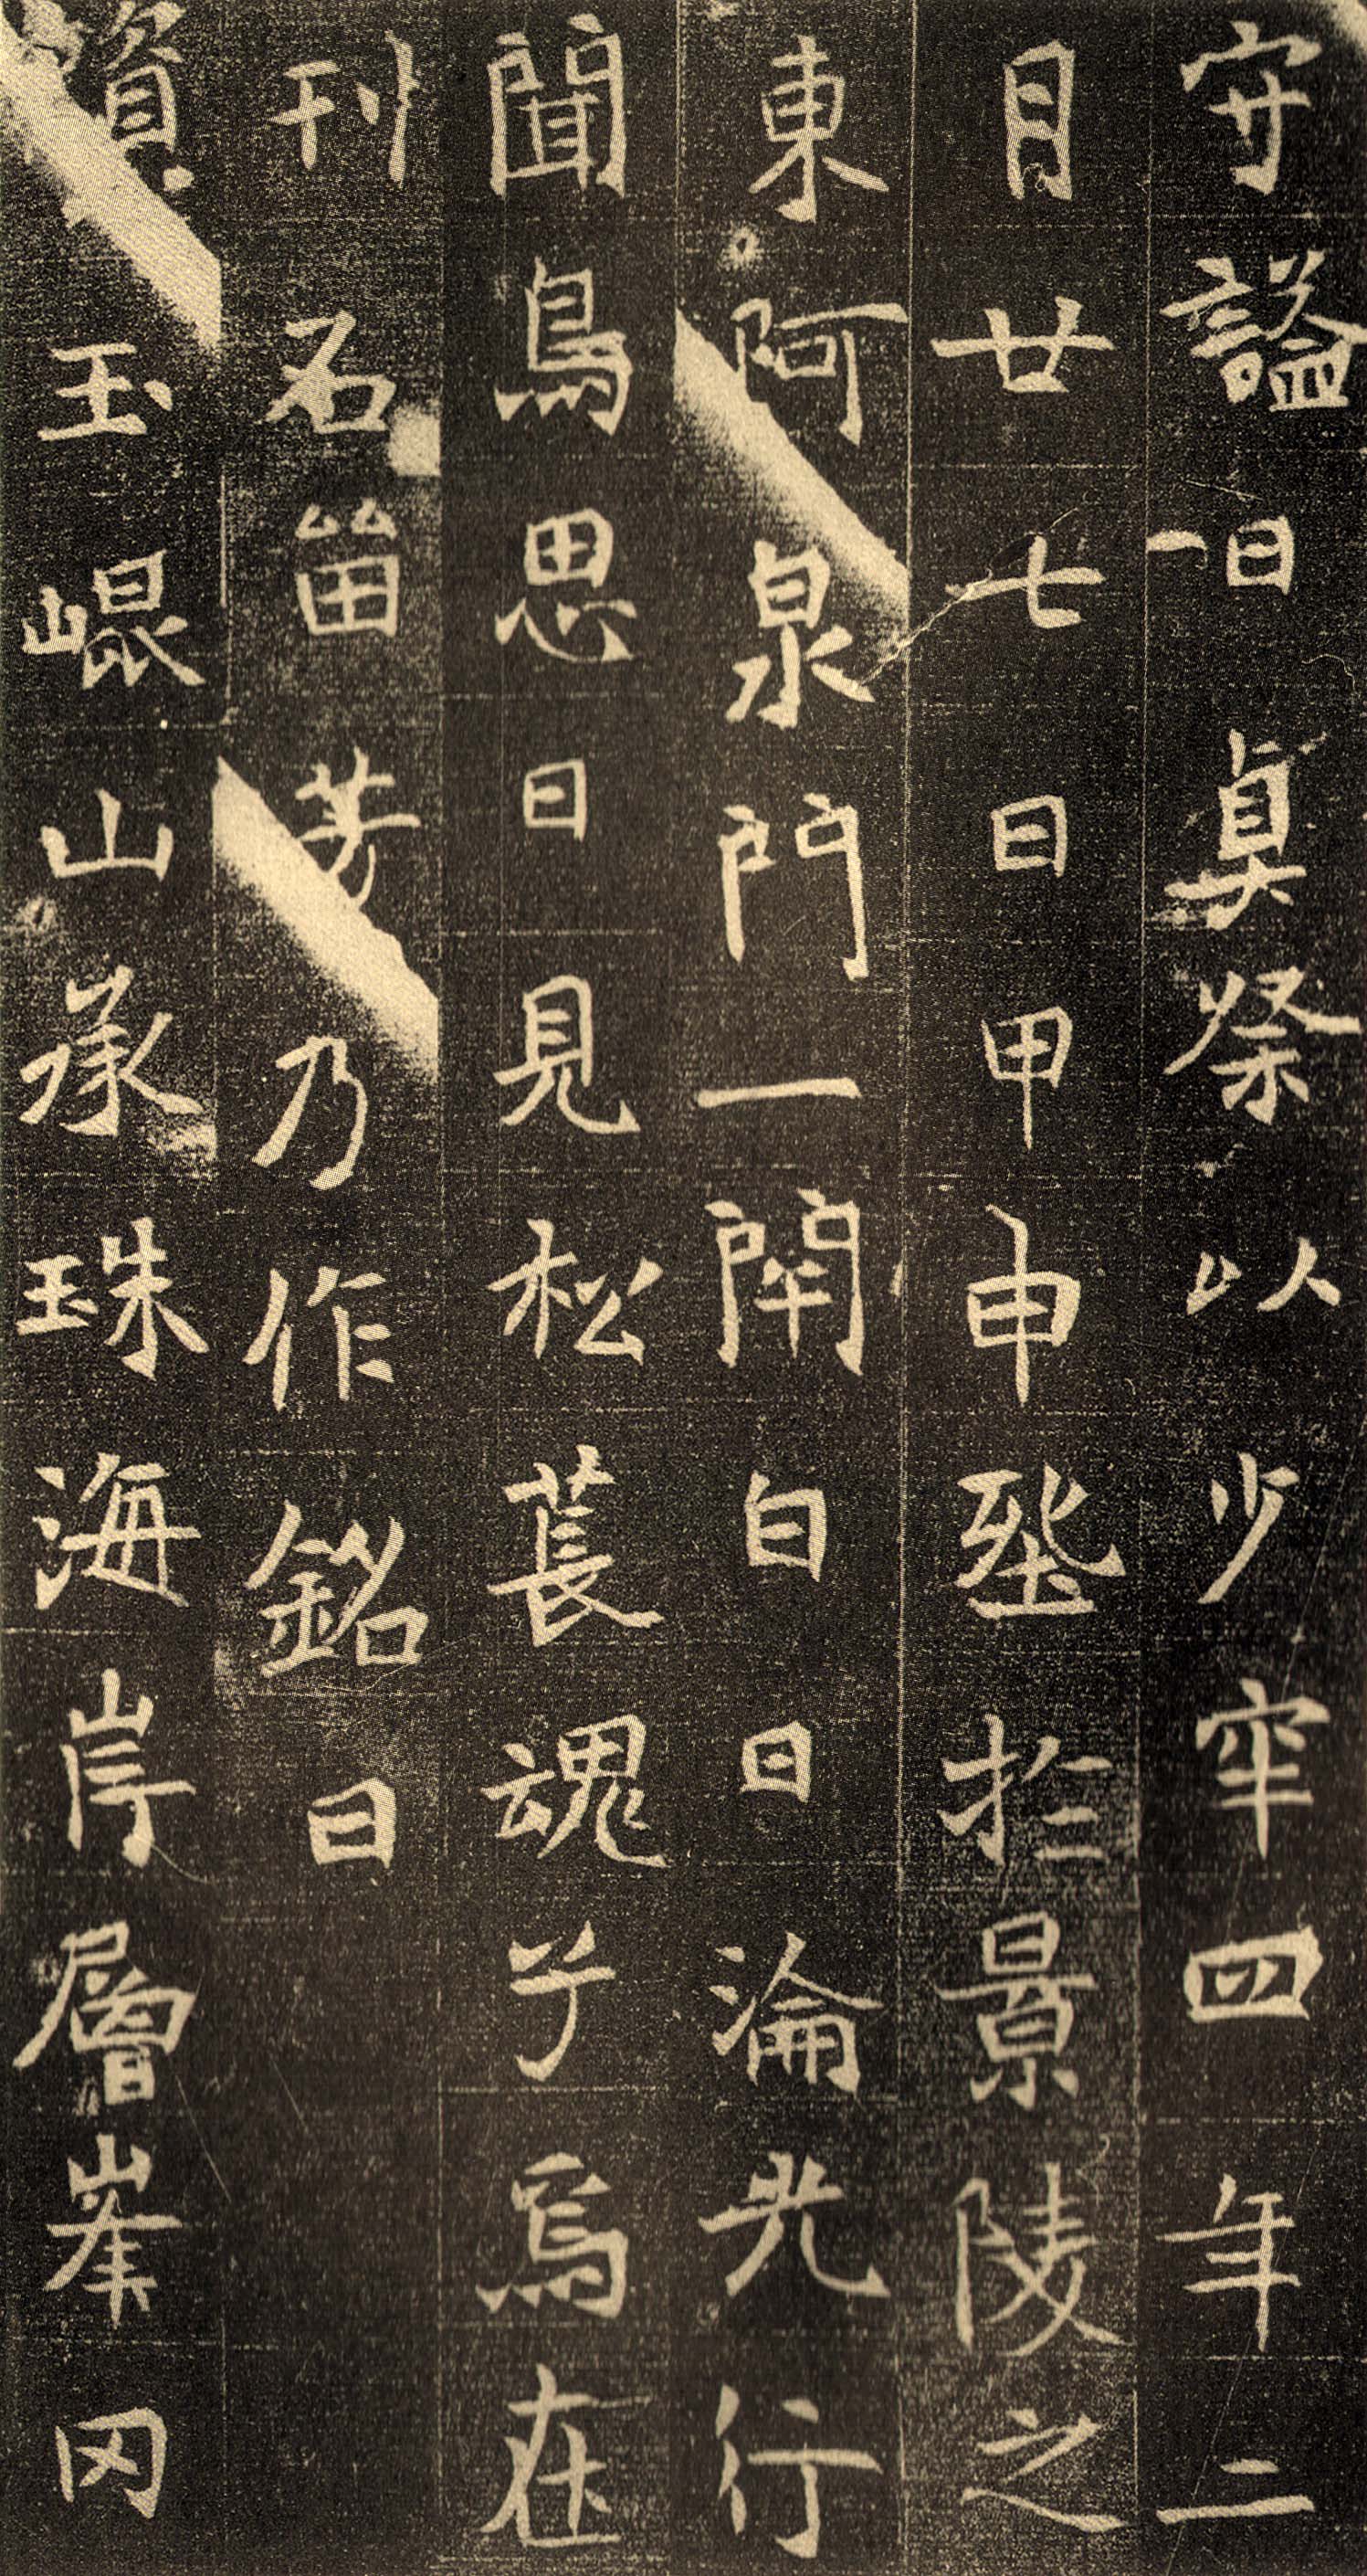 守謚曰貞祭以少牢四年二
月廿七日甲申塟於景陵之
東阿泉門一閇白日淪光行
聞鳥思日見松萇魂乎焉在
刊石畱芳乃作銘曰
玉崐山承珠海岸層峯罔